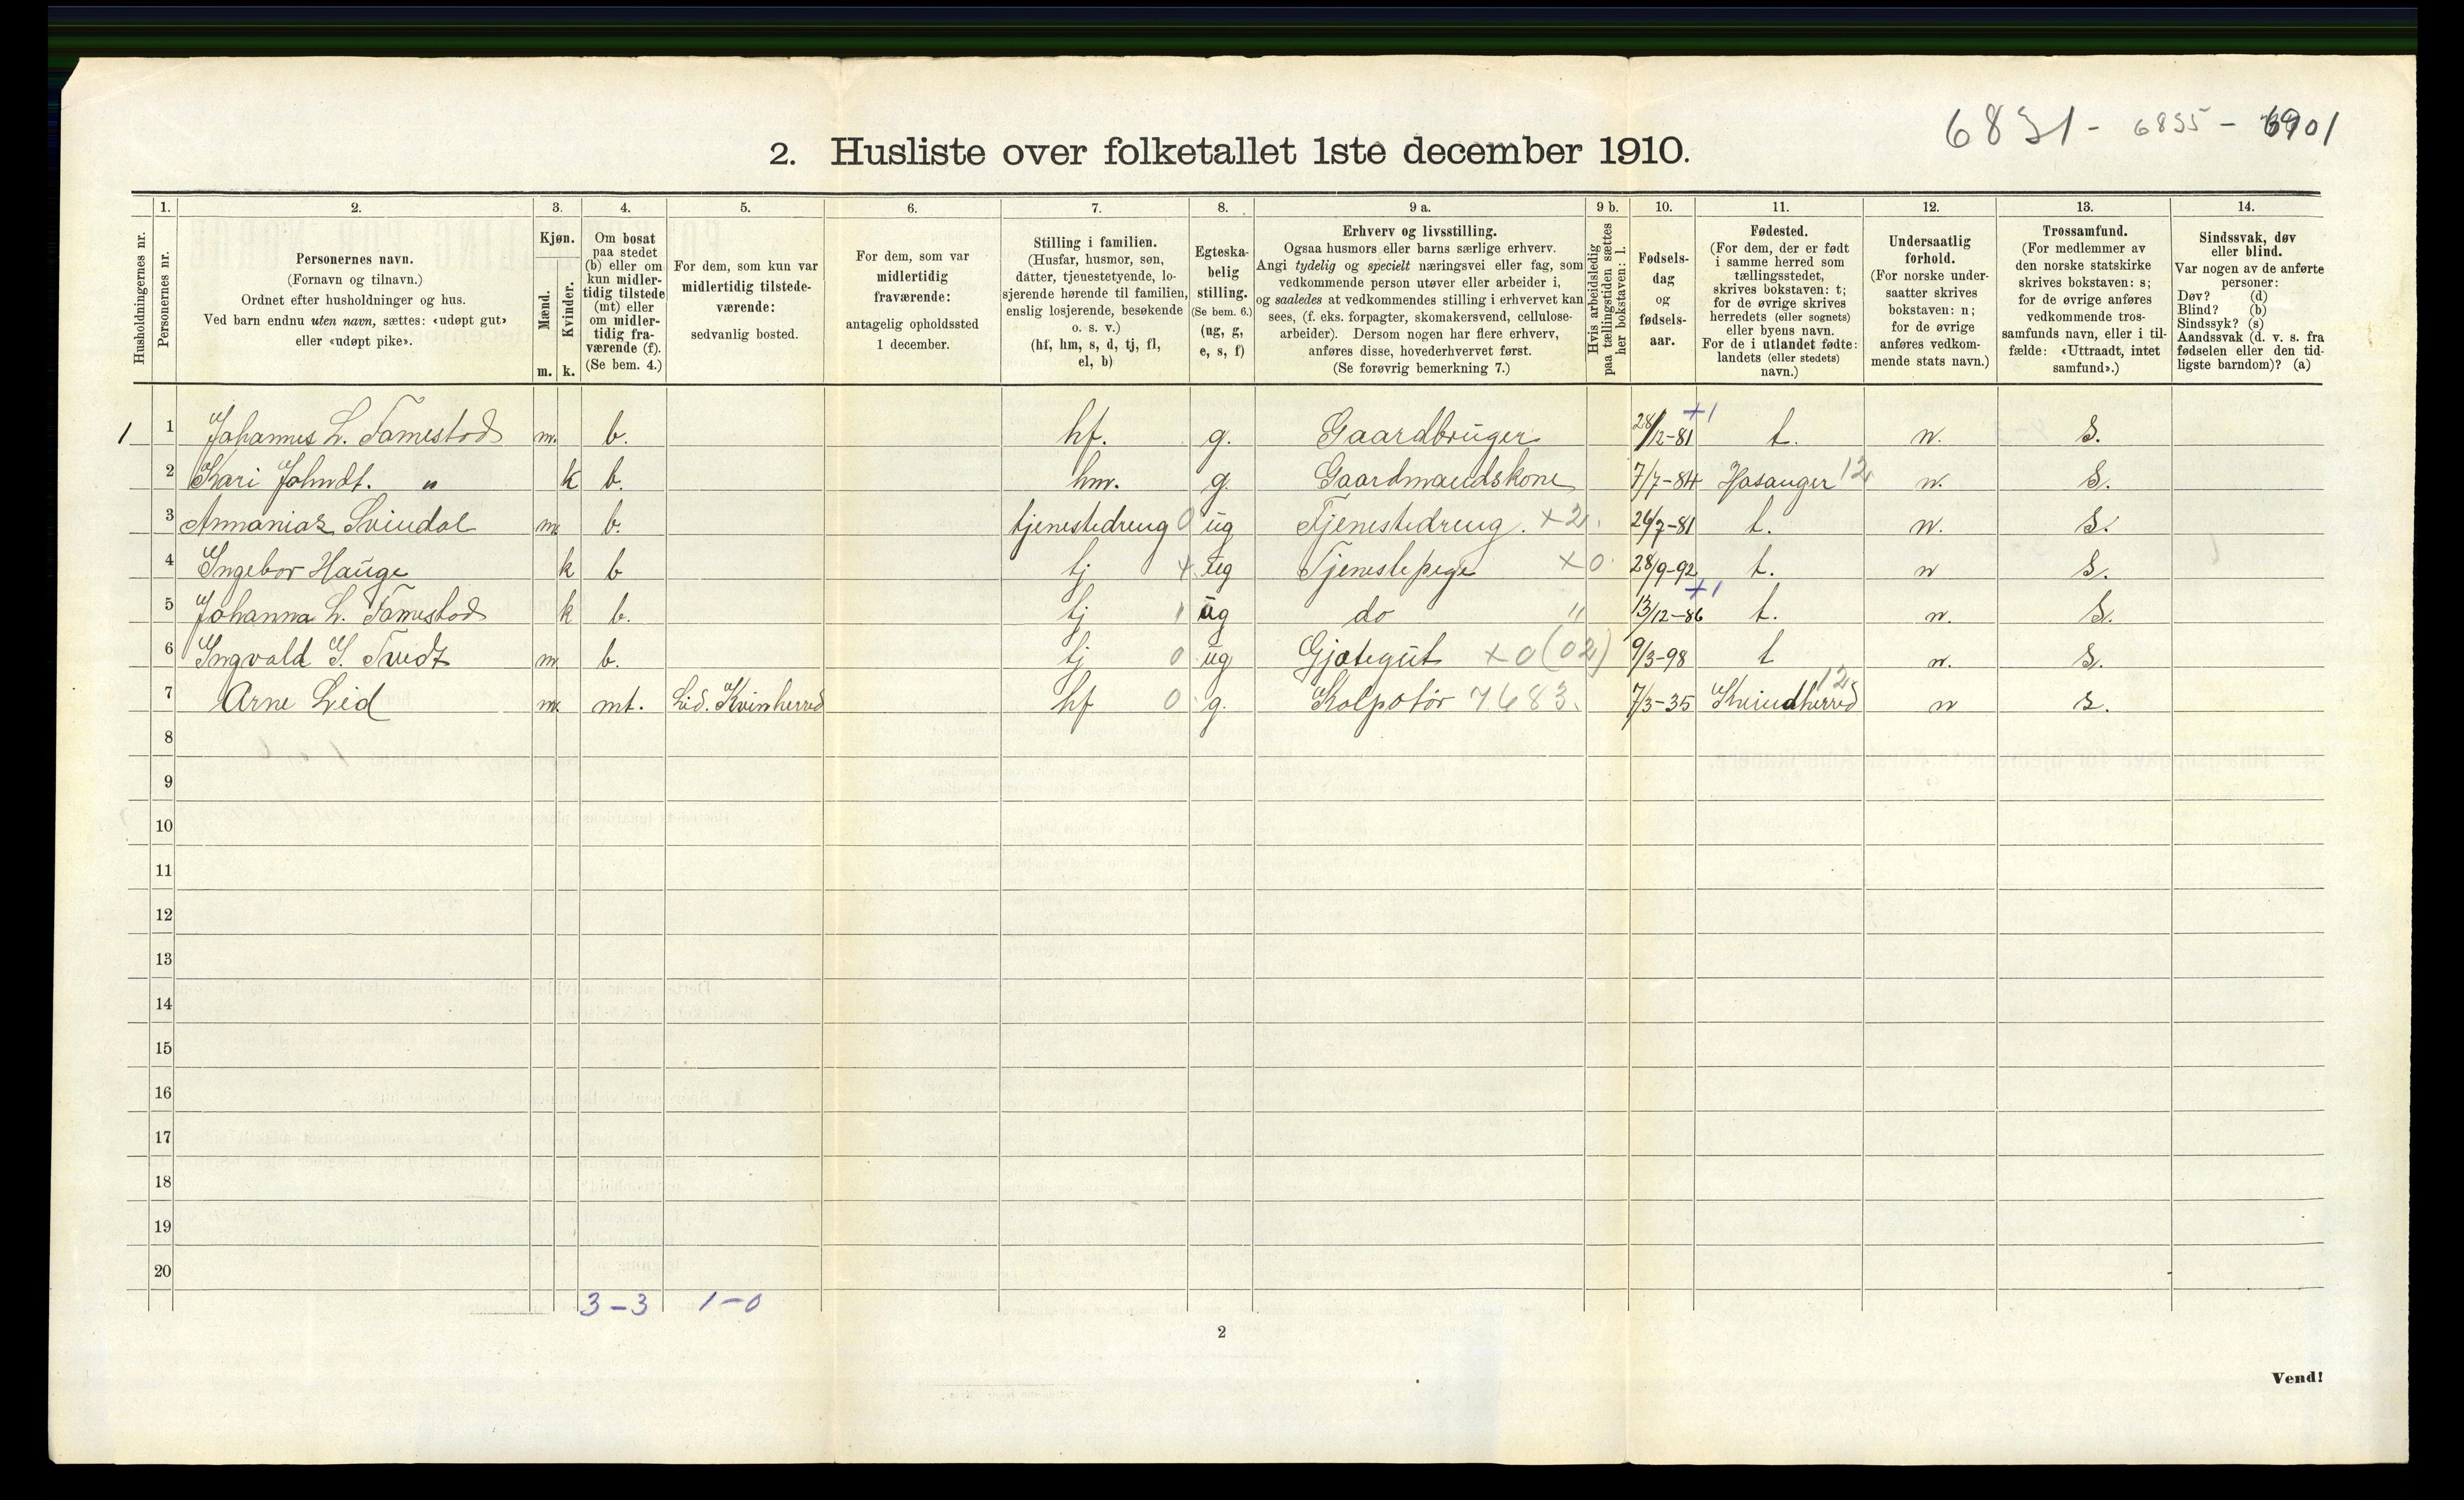 6831 - 6835 - 6901
2. Husliste over folketallet 1ste december 1910.
Husholdningernes nr.
1. Personernes nr.
2. Personernes navn.
(Fornavn og tilnavn.)
Ordnet efter husholdninger og hus.
Ved barn endnu uten navn, sættes: «udøpt gut»
eller «udøpt pike».
3. Kjøn.
Mænd. m.
Kvinder. k.
4. Om bosat
paa stedet
(b) eller om
kun midler-
tidig tilstede
(mt) eller
om midler-
tidig fra-
værende (f).
(Se bem. 4.)
5. For dem, som kun var
midlertidig tilstede-
værende:
sedvanlig bosted.
6. For dem, som var
midlertidig
fraværende:
antagelig opholdssted
1 december.
7. Stilling i familien.
(Husfar, husmor, søn,
datter, tjenestetyende, lo-
sjerende hørende til familien,
enslig losjerende, besøkende
o. s. v.)
(hf, hm, s, d, tj, fl,
el, b)
8. Egteska-
belig
stilling.
(Se bem. 6.)
(ug, g,
e, s, f)
9 a. Erhverv og livsstilling.
Ogsaa husmors eller barns særlige erhverv.
Angi tydelig og specielt næringsvei eller fag, som
vedkommende person utøver eller arbeider i,
og saaledes at vedkommendes stilling i erhvervet kan
sees, (f. eks. forpagter, skomakersvend, cellulose-
arbeider). Dersom nogen har flere erhverv,
anføres disse, hovederhvervet først.
(Se forøvrig bemerkning 7.)
9 b. Hvis arbeidsledig
paa tællingstiden sættes
her bokstaven: l.
10. Fødsels-
dag
og
fødsels-
aar.
11. Fødested.
(For dem, der er født
i samme herred som
tællingsstedet,
skrives bokstaven: t;
for de øvrige skrives
herredets (eller sognets)
eller byens navn.
For de i utlandet fødte:
landets (eller stedets)
navn.)
12. Undersaatlig
forhold.
(For norske under-
saatter skrives
bokstaven: n;
for de øvrige
anføres vedkom-
mende stats navn.)
13. Trossamfund.
(For medlemmer av
den norske statskirke
skrives bokstaven: s;
for de øvrige anføres
vedkommende tros-
samfunds navn, eller i til-
fælde: «Uttraadt, intet
samfund».)
14. Sindssvak, døv
eller blind.
Var nogen av de anførte
personer:
Døv? (d)
Blind? (b)
Sindssyk? (s)
Aandssvak (d. v. s. fra
fødselen eller den tid-
ligste barndom)? (a)
1 1 Johannes L. Tamestod m. b. hf. g. Gaardbruger 28/12-81 +1 t. n. S.
2 Kari Johndt. " k b. hm. g. Gaardmandskone 7/7-84 Hosanger 12 n. S.
3 Annanias Svindal m. b. tjenestedreng 0 ug Tjenestedreng. x2. 26/7-81 t. n. S.
4 Ingebor Hauge k b tj ug Tjenestepege x0. 28/9-92 t. n S.
5 Johanna L. Tamestod k b. tj 1 ug do " 13/12-86 +1 t. n. S.
6 Ingvald J. Tvedt m. b. tj 0 ug Gjætegut x0 (02) 9/3-98 t n. S.
7 Arne Lid m. mt. Lid. Kvinherred hf 0 g. Kolpotør 7683. 7/3-35 Kvindherred 12 n s.
8
9
10
11
12
13
14
15
16
17
18
19
20
3-3 1-0
2
Vend!